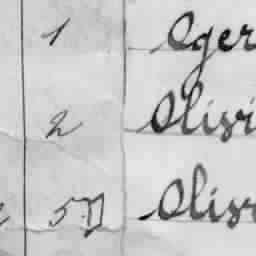 1 Oger
2 Olivi
5 Olivi